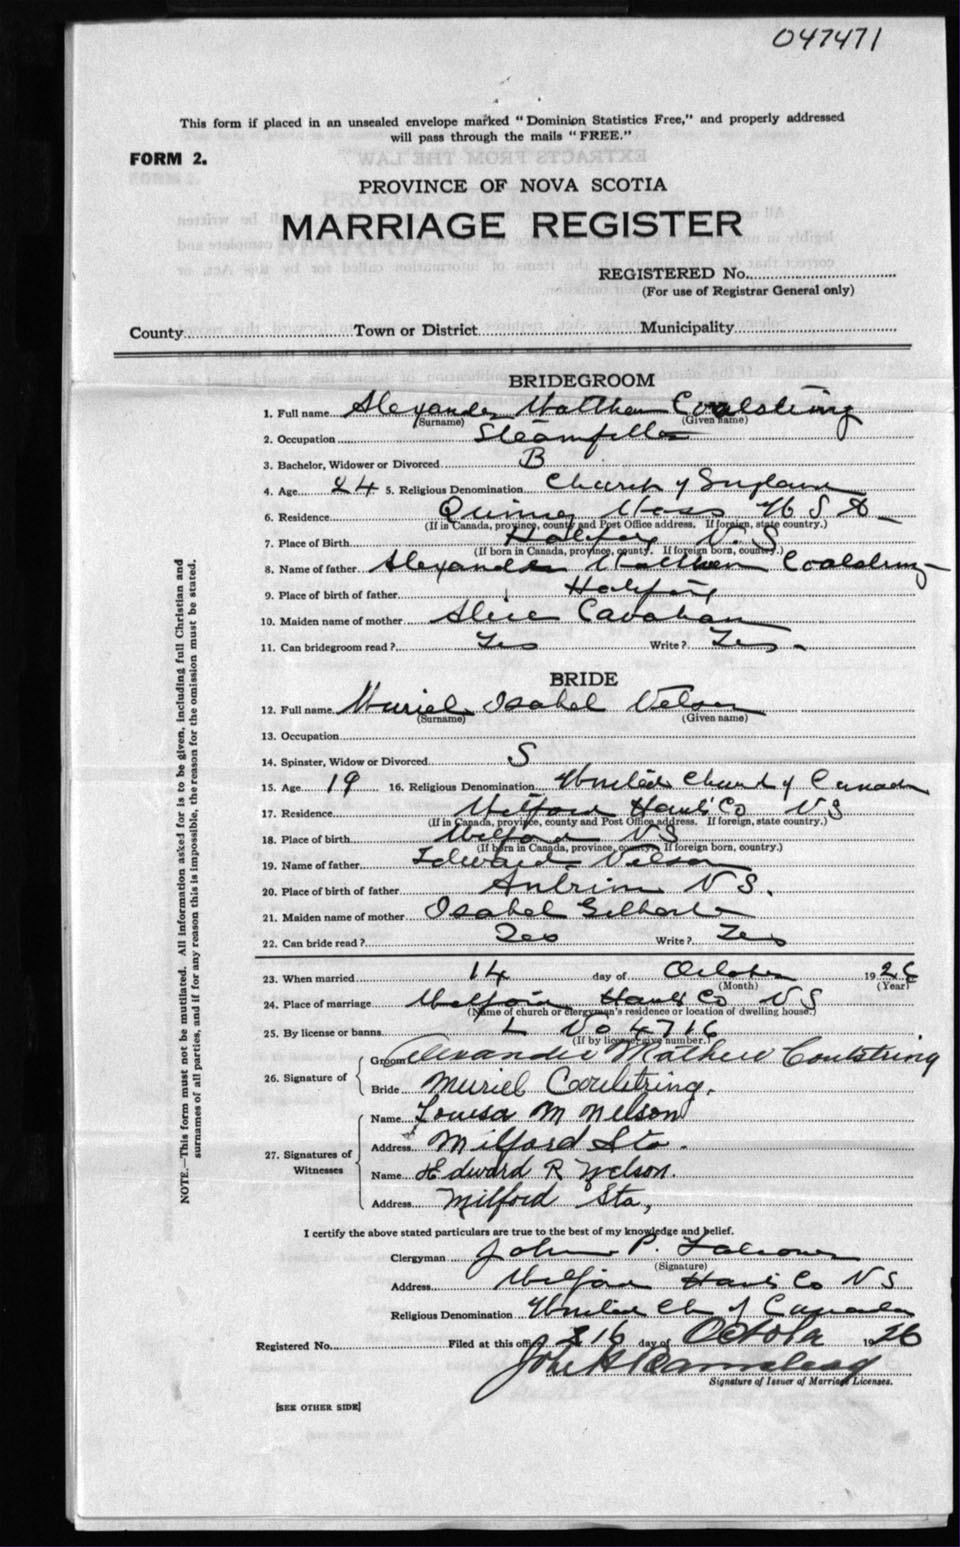 047471
This form if placed in an unsealed envelope marked "Dominion Statistics Free," and properly addressed
will pass through the mails "FREE."
FORM 2.
PROVINCE OF NOVA SCOTIA
MARRIAGE REGISTER
REGISTERED No.
(For use of Registrar General only)
County Town or District Municipality
BRIDEGROOM
1. Full name Alexander Matthew Coolstring
(Surname) (Given name)
2. Occupation Steamfitter
3. Bachelor, Widower or Divorced B
4. Age 24 5. Religious Denomination Church of England
6. Residence Quincy Mass U S A
(If in Canada, province, county and Post Office address. If foreign, state country.)
7. Place of Birth Halifax N. S
(If born in Canada, province, county. If foreign born, country.)
8. Name of father Alexander Matthew Coolstring
9. Place of birth of father Halifax
10. Maiden name of mother Alice
11. Can bridegroom read? Yes Write? Yes
BRIDE
12. Full name Muriel Isabel Nelson
(Surname) (Given name)
13. Occupation
14. Spinster, Widow or Divorced S
15. Age 19 16. Religious Denomination United Church of Canada
17. Residence Milford Hants Co N S
(If in Canada, province, county and Post Office address. If foreign, state country.)
18. Place of birth Milford N S
(If born in Canada, province, county. If foreign born, country.)
19. Name of father Edward Nelson
20. Place of birth of father Antrim N S.
21. Maiden name of mother Isabel Gilbert
22. Can bride read? Yes Write? Yes
23. When married 14 day of October 1926
(Month) (Year)
24. Place of marriage Milford Hants Co N S
(Name of church or clergyman's residence or location of dwelling house.)
25. By license or banns L No 4716
(If by license, give number.)
Groom Alexander Mathew Coulstring
26. Signature of
Bride Muriel Coulstring.
Name Louisa M Nelson
Address Milford Sta.
27. Signatures of
Witnesses
Name Edward R Nelson.
Address Milford Sta,
I certify the above stated particulars are true to the best of my knowledge and belief.
Clergyman John P. Falconer
(Signature)
Address Milford Hants Co N S
Religious Denomination United Ch of Canada
Registered No. Filed at this office 16 day of October 1926
John H
Signature of Issuer of Marriage Licenses.
[SEE OTHER SIDE]
NOTE.—This form must not be mutilated. All information asked for is to be given, including full Christian and
surnames of all parties, and if for any reason this is impossible, the reason for the omission must be stated.